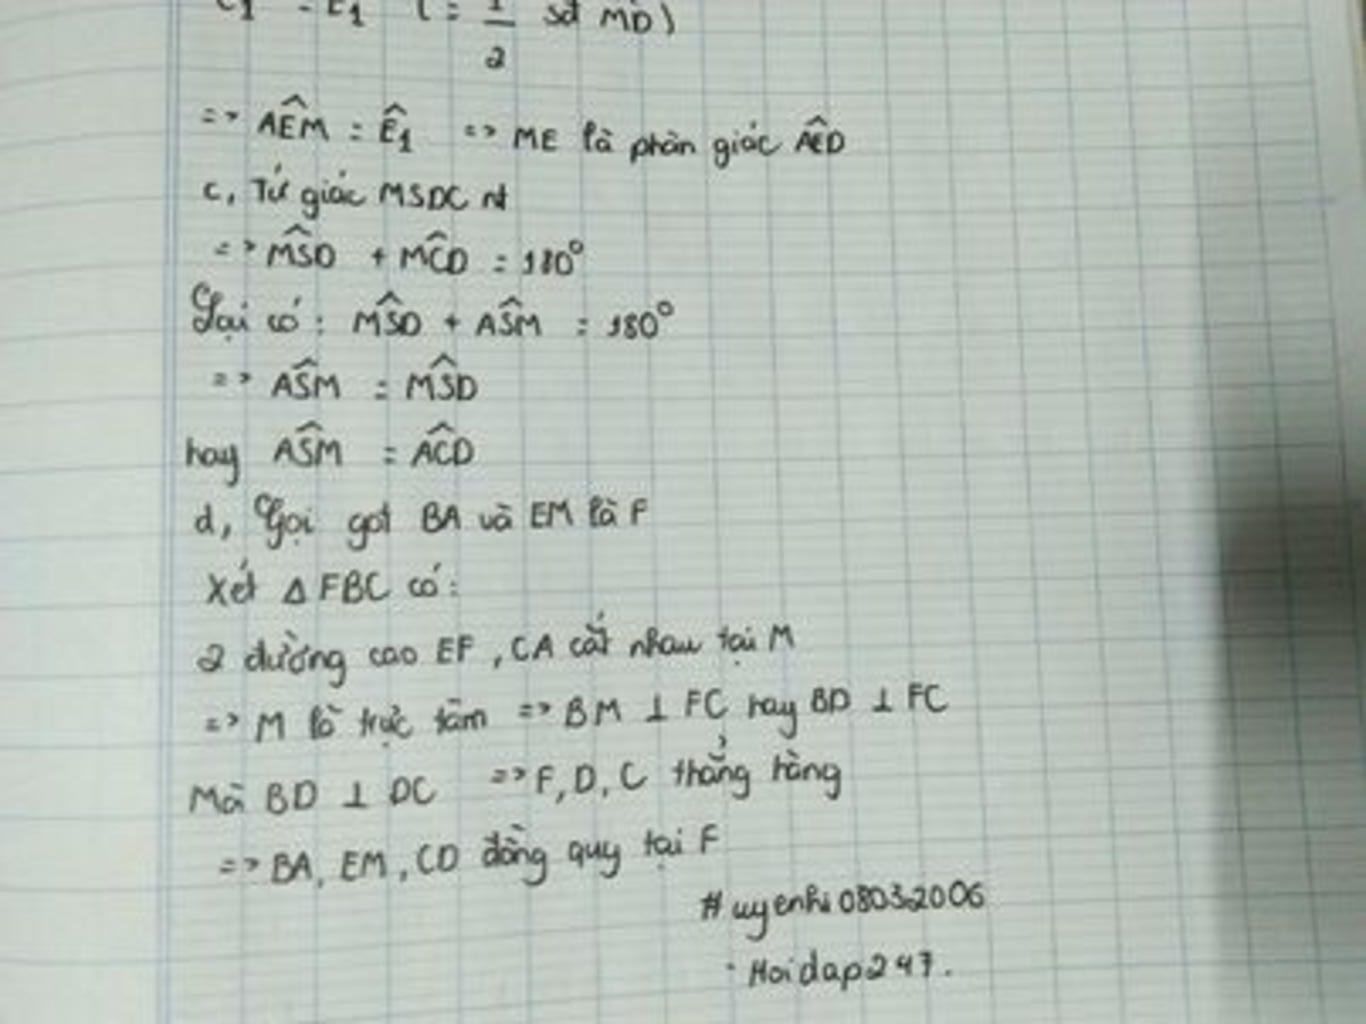 = E₁ ( = 1/2 sđ MD )
=> AÊM = Ê₁ => ME là phân giác AÊD
c, Tứ giác MSDC nt
=> MŜD + MĈD = 180°
Lại có : MŜD + AŜM = 180°
=> AŜM = MŜD
hay AŜM = AĈD
d, Gọi gđ BA và EM là F
Xét Δ FBC có :
2 đường cao EF , CA cắt nhau tại M
=> M là trực tâm => BM ⊥ FC hay BD ⊥ FC
Mà BD ⊥ DC => F, D, C thẳng hàng
=> BA, EM, CD đồng quy tại F
# uyenhi08032006
· Hoidap247.